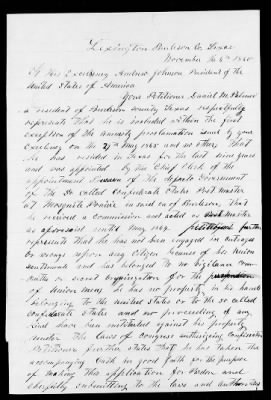 Lexington Burleson Co Texas
November the 8th 1865
To His Excellency Andrew Johnson President of the
United States of America
Your Petitioner Daniel M.
a resident of Burleson County Texas respectfully
represents that he is included within the first
exception of the amnesty proclamation issued by your
Excellency on the 29th May 1865 and no other, that
he has resided in Texas for the last nine years
and was appointed by the Chief Clerk of the
appointment of the de facto Government
of the So called Confederate States Post Master
at Mosquite Prairie in said co of Burleson, that
he received a commission and acted as Post Master
as aforesaid until May 1864. further
represents that he has not engaged in outrages
or wrongs upon any Citizen because of his Union
sentiment and has belonged to no vigilance
or secret organization for the
of Union men he has no property in his hands
belonging to the united states or to the so called
confederate states and no proceeding of any
kind have been instituted against his property
under the laws of congress authorizing confiscation
Petitioner further states that he has taken the
accompanying oath in good faith for the purpose
of making this application for Pardon and
cheerfully submitting to the laws and authority